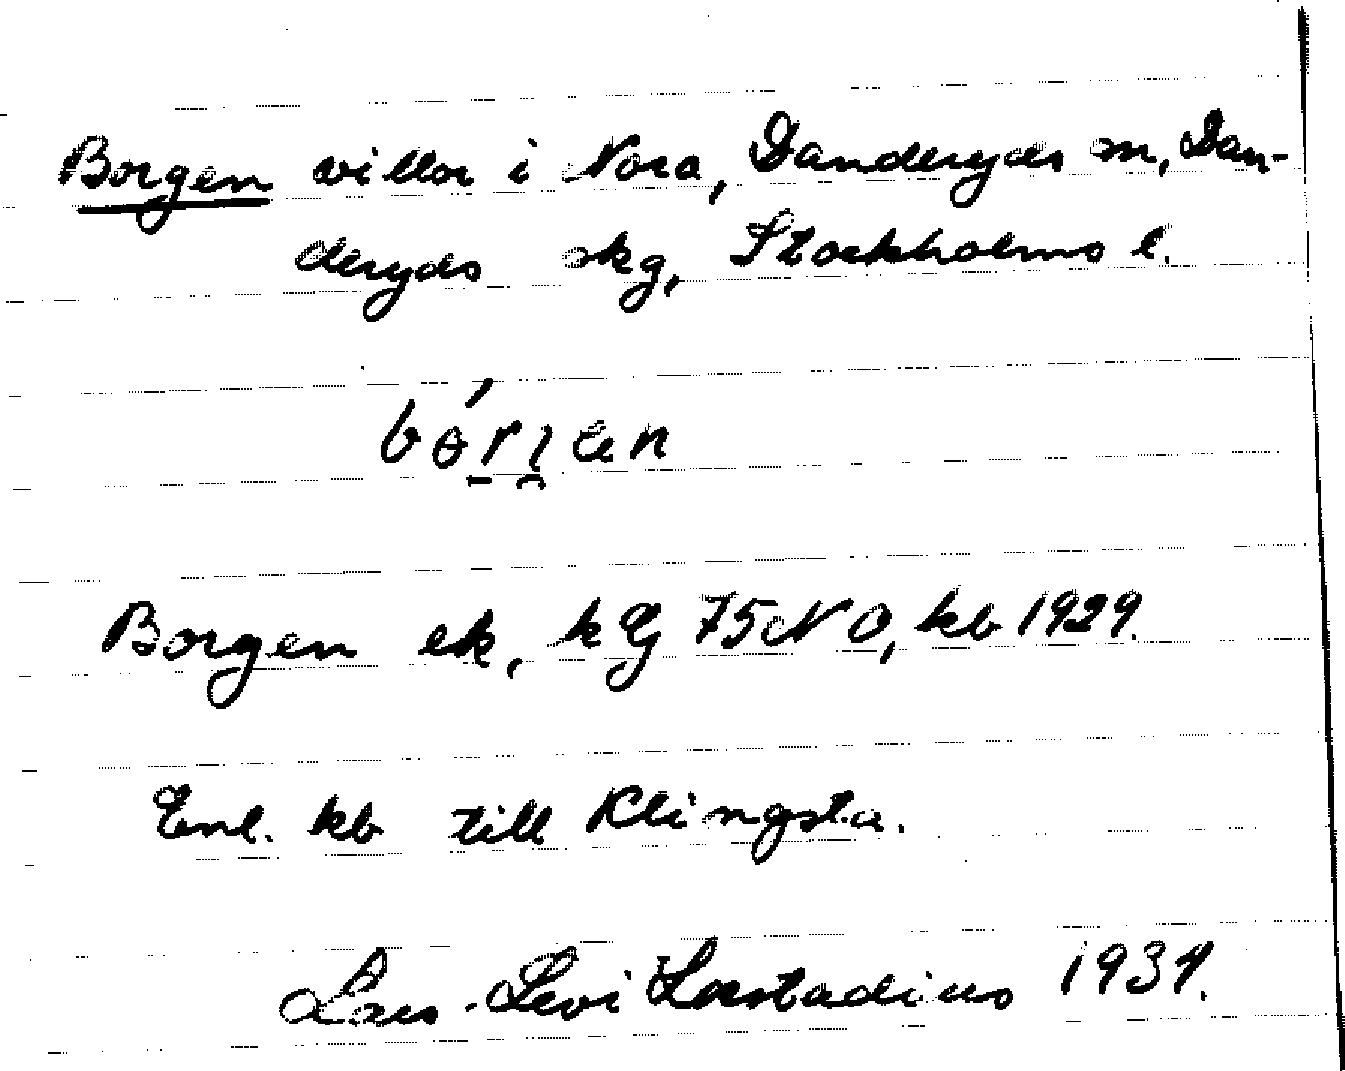 Borgen villa i Nora, Danderyds sn, Dan-
deryds skg, Stockholms l.
bórjen
Borgen ek, kg 75 NO, kb 1929.
Enl. kb till Klingsta.
Lars-Levi Læstadius 1937.